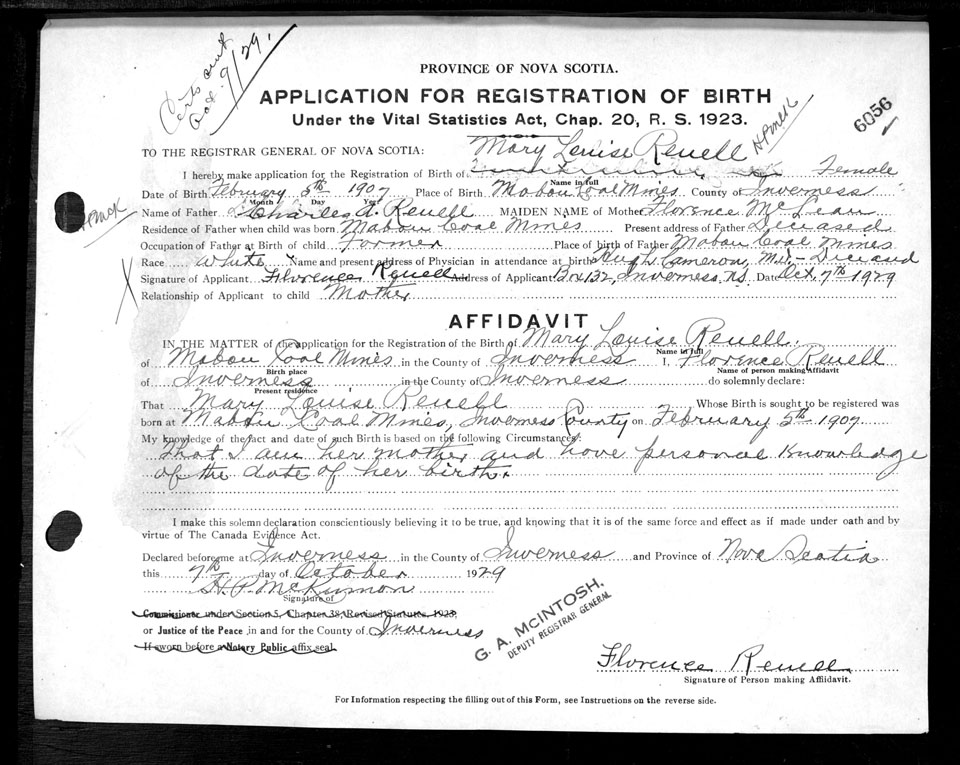 Certs sent
Oct. 9/29.
PROVINCE OF NOVA SCOTIA.
APPLICATION FOR REGISTRATION OF BIRTH
Under the Vital Statistics Act, Chap. 20, R. S. 1923.
6056
TO THE REGISTRAR GENERAL OF NOVA SCOTIA:
I hereby make application for the Registration of Birth of Mary Louise Renell Female
Name in full
Date of Birth February 5th 1907 Place of Birth Mabou Coal Mines County of Inverness
Month Day Year
Name of Father Charles A. Renell MAIDEN NAME of Mother Florence McLean
Residence of Father when child was born Mabou Coal Mines Present address of Father Deceased
Occupation of Father at Birth of child Farmer Place of birth of Father Mabou Coal Mines
Race White Name and present address of Physician in attendance at birth Hugh Cameron, M.D. - Deceased
Signature of Applicant Florence Renell Address of Applicant Box 132, Inverness N.S. Date Oct. 7th 1929
Relationship of Applicant to child Mother
AFFIDAVIT
IN THE MATTER of the application for the Registration of the Birth of Mary Louise Renell.
Name in full
of Mabou Coal Mines in the County of Inverness I, Florence Renell
Birth place Name of person making Affidavit
of Inverness in the County of Inverness do solemnly declare:
Present residence
That Mary Louise Renell Whose Birth is sought to be registered was
born at Mabou Coal Mines, Inverness County on February 5th 1907
My knowledge of the fact and date of such Birth is based on the following Circumstances:
That I am her mother and have personal knowledge
of the date of her birth.
I make this solemn declaration conscientiously believing it to be true, and knowing that it is of the same force and effect as if made under oath and by
virtue of The Canada Evidence Act.
Declared before me at Inverness in the County of Inverness and Province of Nova Scotia
this 7th day of October 1929
H. P. McKinnon
Signature of
Commissioner under Section 5, Chapter 38, Revised Statutes, 1923,
or Justice of the Peace in and for the County of Inverness
If sworn before a Notary Public affix seal
G. A. McINTOSH,
DEPUTY REGISTRAR GENERAL
Florence Renell
Signature of Person making Affidavit.
For Information respecting the filling out of this Form, see Instructions on the reverse side.